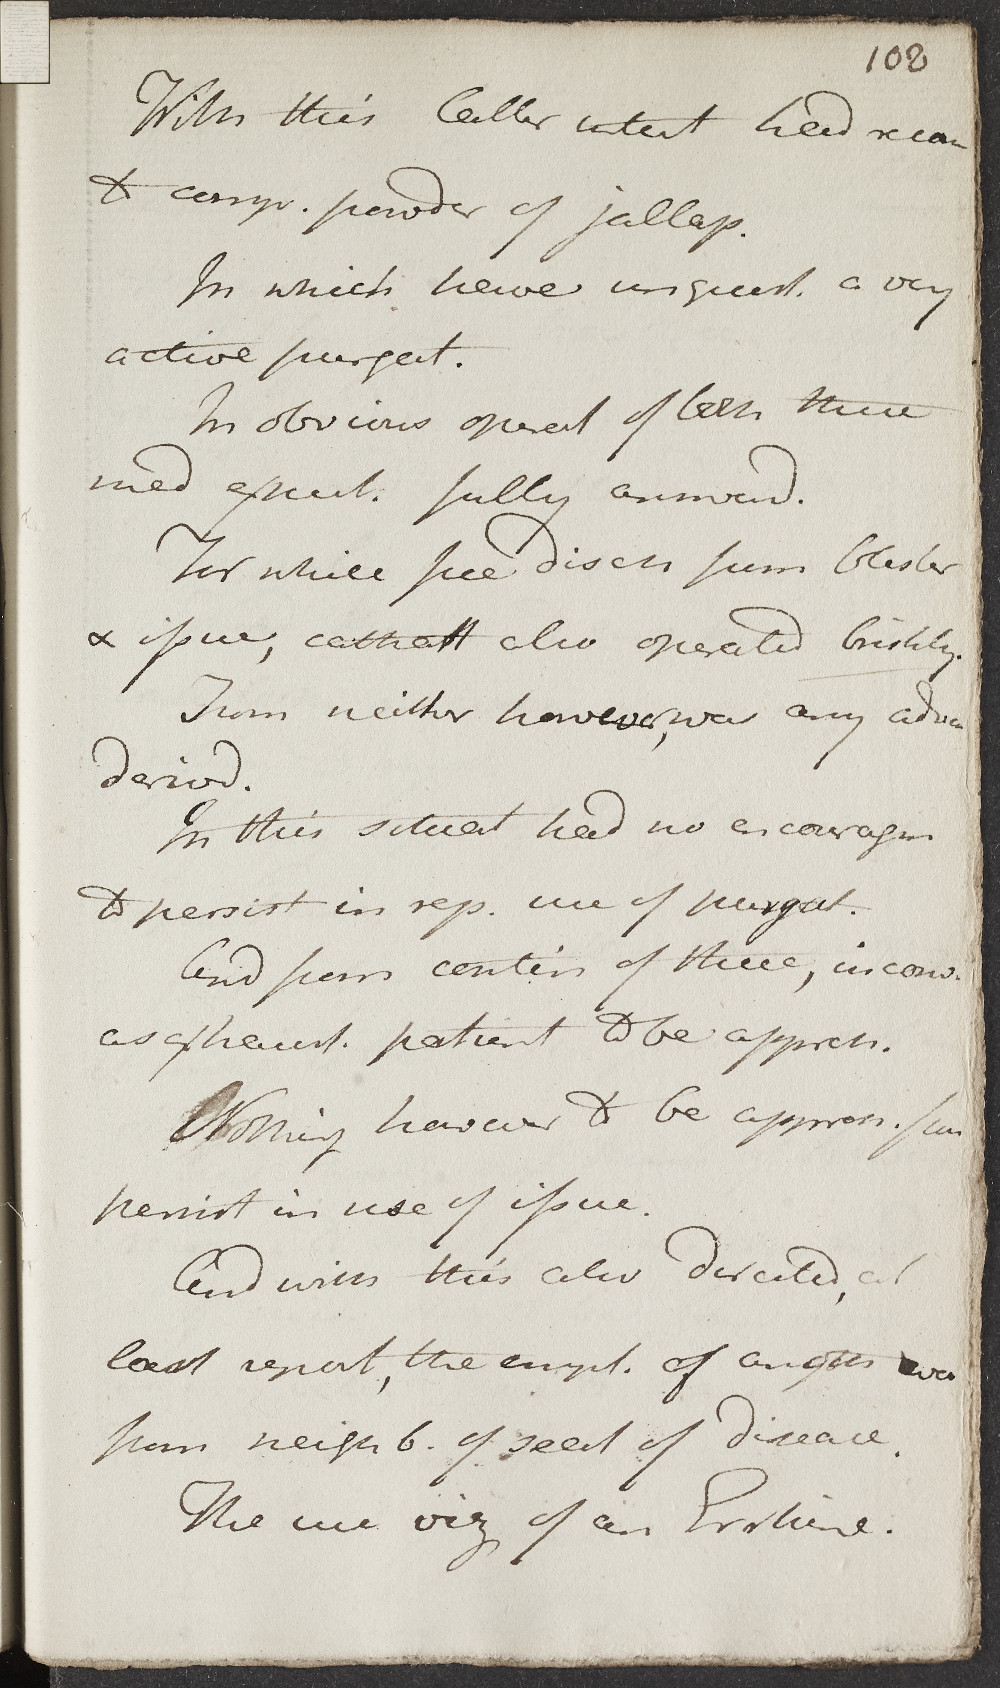 102
With this latter intent had recou
to comp. powder of jallap.
In which have unquest. a very
active purgat.
In obvious operat of both these
med expect. fully answerd.
For while free disch from blister
& issue, cathart also operated briskly.
From neither however, was any adva
derivd.
In this situat had no encouragm
to persist in rep. use of purgat.
And from contin of these, inconv.
as exhaust. patient to be appreh.
Nothing however to be appreh. from
persist in use of issue.
And with this also directed, at
last report, the empl. of anoth evac
from neighb. of seat of disease.
The use viz of an Errhine.